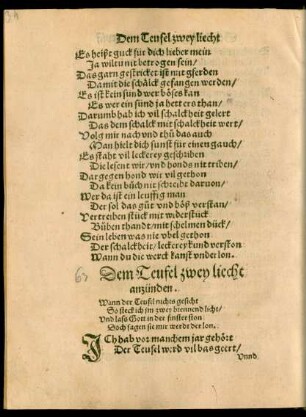 Dem Teufel zwey liecht
Es heißt guck für dich lieber mein
Ja wiltu nit betrogen sein/
Das garn gestricket ist nut gferden
Damit die schälck gefangen werden/
Es ist kein sünd wer böses kan
Es wer ein sünd ja hett ers than/
Darumb hab ich vil schalckheit gelert
Das dem schalck mit schalckheit wert/
Volg mir nach vnd thů das auch
Man hielt dich sunst für einen gauch/
Es staht vil leckerey geschriben
Die lesent wir/vnd honds nit triben/
Dargegen hond wir vil gethon
Da kein bůch nit schreibt daruon/
Wer da ist ein leuffig man
Der sol das gůt vnd böß verstan/
Vertreiben stück mit widerstück
Bůben thandt mit schelmen dück/
Sein leben was nie vbel gethon
Der schalckheit/leckerey kund verston
Wann du die werck kanst vnder lon.
63
Dem Teufel zwey liecht
anzünden.
Wann der Teufel nichts gesicht
So steck ich im zwey brennend licht/
Vnd laß Gott in der finster ston
Doch sagen sie mir werdt der lon.
ICh hab vor manchem jar gehört
Der Teufel wird vil bas geert/
Vnnd